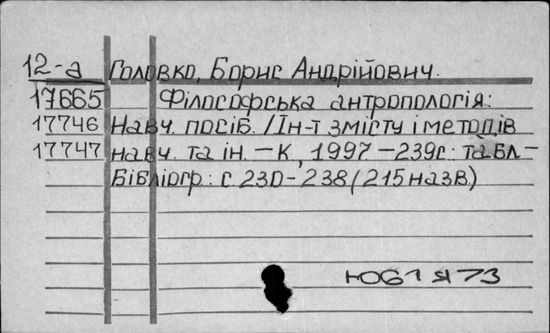 12-а Головко, Борис Андрійович.
17665 Філософська антропологія:
17746 Навч. посіб. / Ін-т змісту і методів
17747 навч. та ін. - К, 1997 - 239с: табл-
Бібліогр.: с. 230-238 (215 назв)
Ю61я73